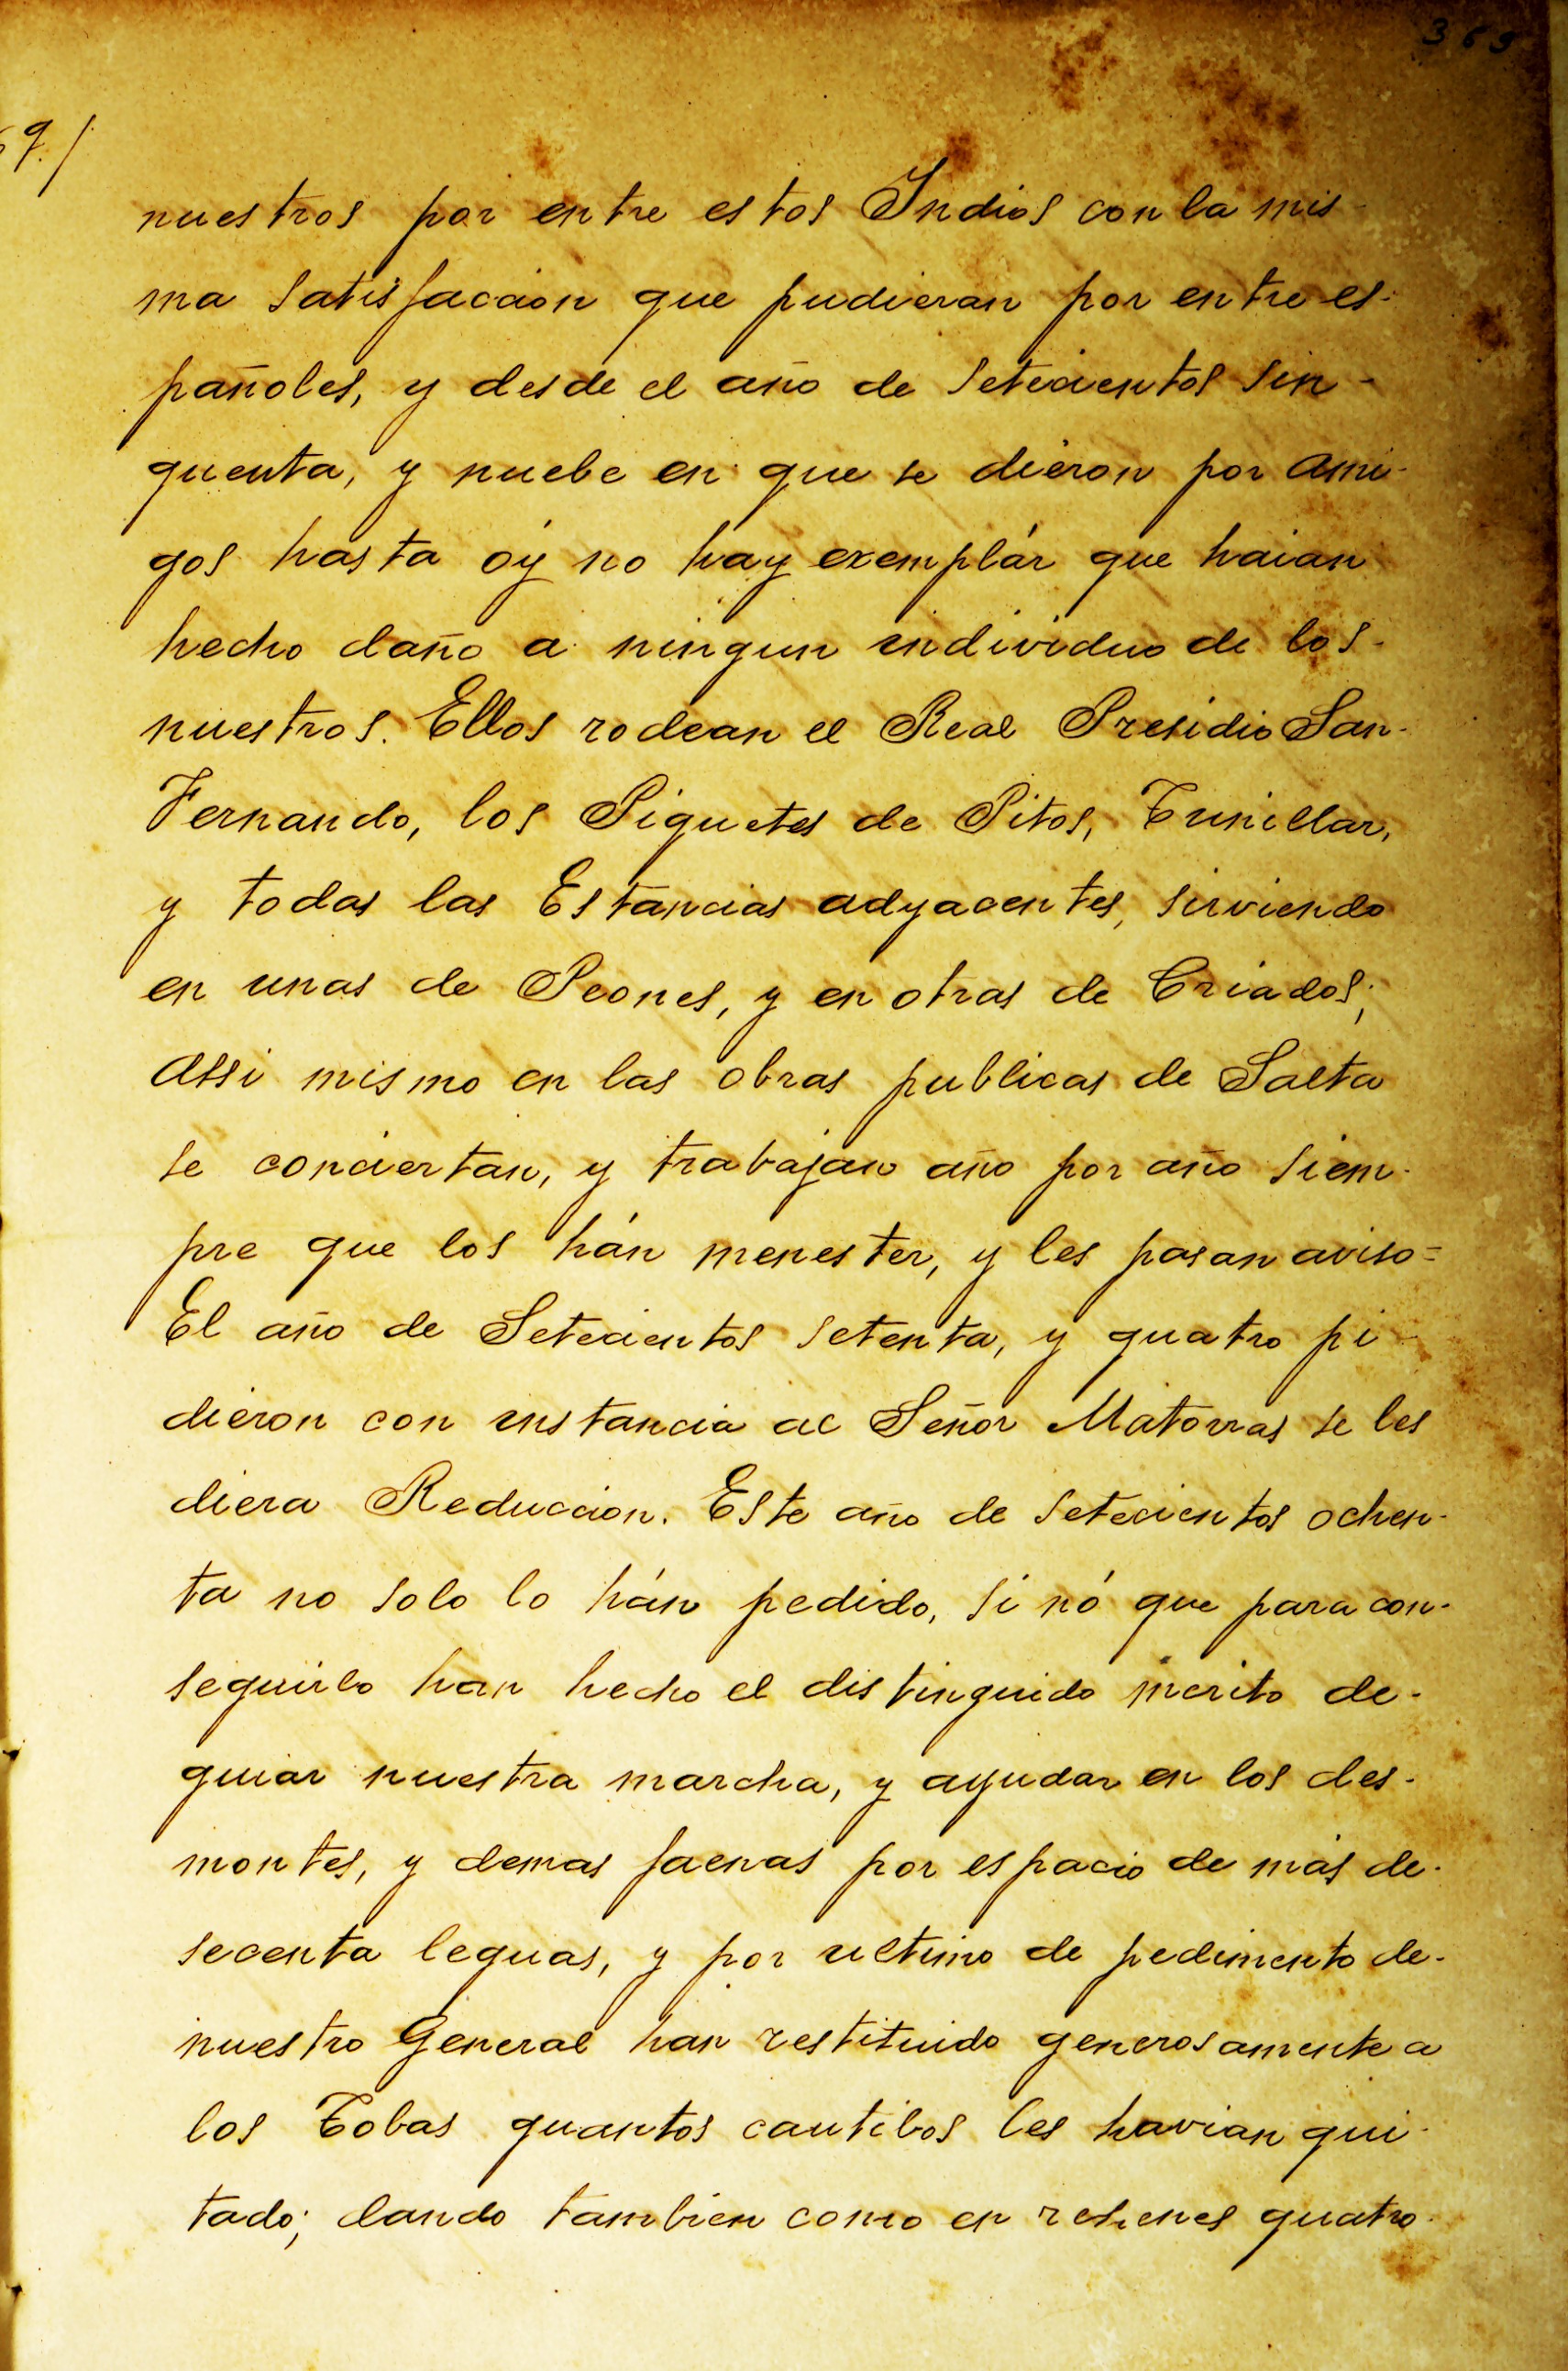 369
9./
nuestros por entre estos Indios con la mis-
ma satisfaccion que pudieran por entre es-
pañoles, y desde el año de setecientos sin-
quenta, y nuebe en que se dieron por ami-
gos hasta oý no hay exemplár que haian
hecho daño a ningun individuo de los-
nuestros. Ellos rodean el Real Presidio San-
Fernando, los Piquetes de Pitos, Tunillar,
y todas las Estancias adyacentes, sirviendo
en unas de Peones, y en otras de Criados;
assi mismo en las obras publicas de Salta
se conciertan, y trabajan año por año siem-
pre que los hán menester, y les pasan aviso=
El año de Setecientos setenta, y quatro pi-
dieron con instancia al Señor Matorras se les
diera Reduccion. Este año de setecientos ochen-
ta no solo lo hán pedido, si nó que para con-
seguirlo han hecho el distinguido merito de-
guiar nuestra marcha, y ayudar en los des-
montes, y demas faenas por espacio de más de-
secenta leguas, y por ultimo de pedimento de-
nuestro General han restituido generosamente a
los Tobas quantos cautibos les havian qui-
tado; dando tambien como en rehenes quatro-